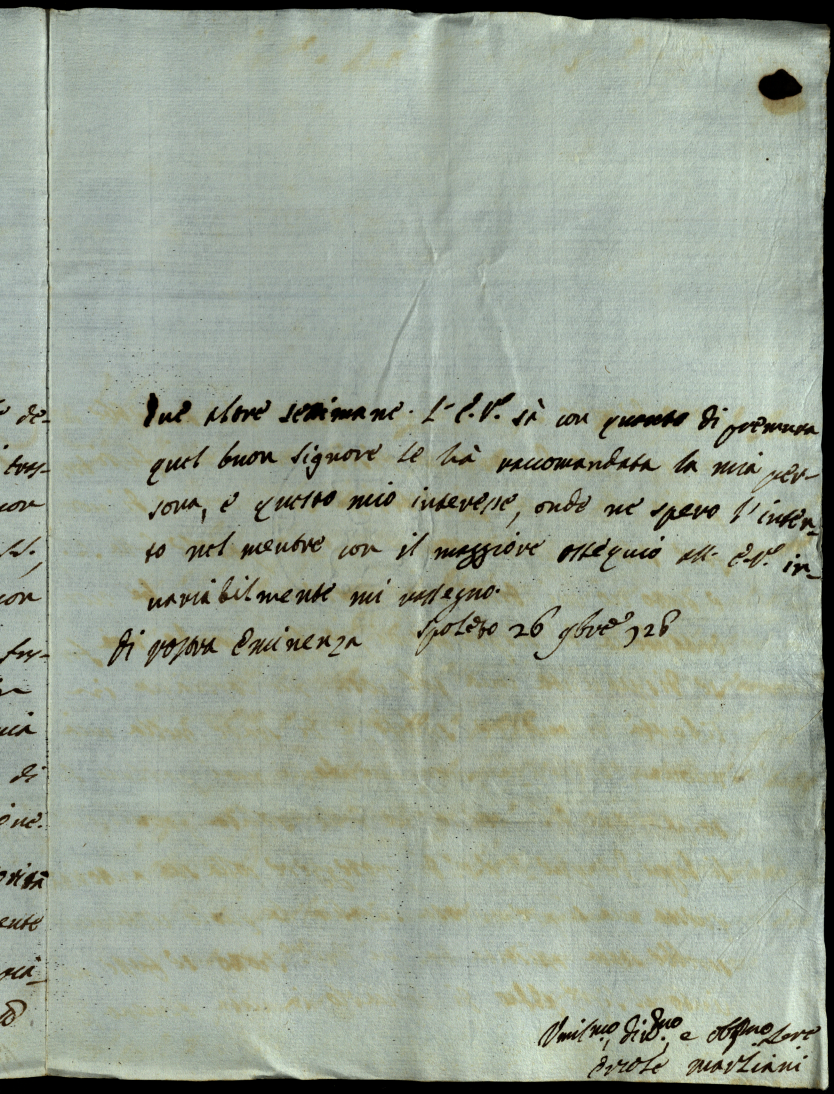 due altre settimane. L'E.V. sà con quanto di premura
quel buon Signore le hà raccomandata la mia per-
sona, e questo mio interesse, onde ne spero l'inten-
to nel mentre con il maggiore ossequio all' E.V. in-
variabilmente mi rassegno.
Di Vostra Eminenza Spoleto 26 9bre 726
Umilmo, divmo, e obbmo Serre
Ercole Marziani
de-
tras-
con
con
fus-
di
one.
orità
ente